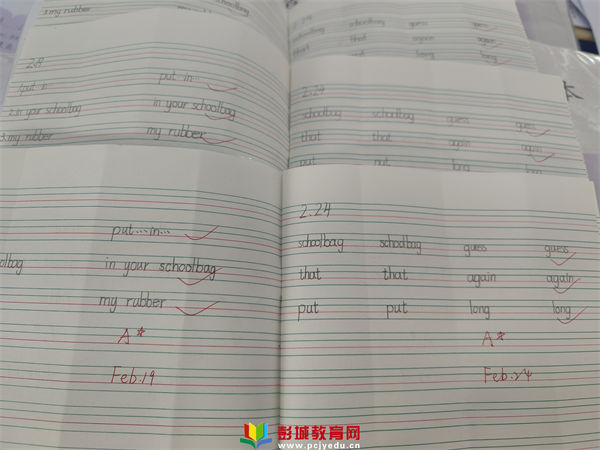 3.my rubber
schoolbag
2.24
schoolbag guess guess
that that again again
long long
2.19
1.put in put in...
2.in your schoolbag in your schoolbag
3.my rubber my rubber
2.24
schoolbag schoolbag guess guess
that that again again
put put long
本
put...in...
olbag in your schoolbag
my rubber
A*
Feb.19
2.24
schoolbag schoolbag guess guess
that that again again
put put long long
A*
Feb.24
彭城教育网
www.pcjyedu.cn